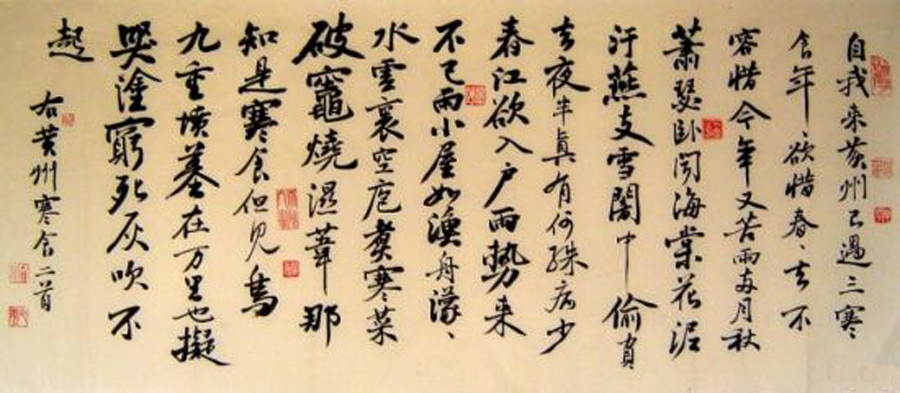 自我来黄州已過三寒
食年、欲惜春、去不
容惜今年又苦雨兩月秋
蕭瑟卧聞海棠花泥
汙燕支雪闇中偷負
去夜半真有何殊病少
春江欲入户雨勢来
不已雨小屋如漁舟濛、
水雲裏空庖煑寒菜
破竈燒濕葦那
知是寒食但見烏
九重墳墓在万里也擬
哭塗窮死灰吹不
起
右黄州寒食二首